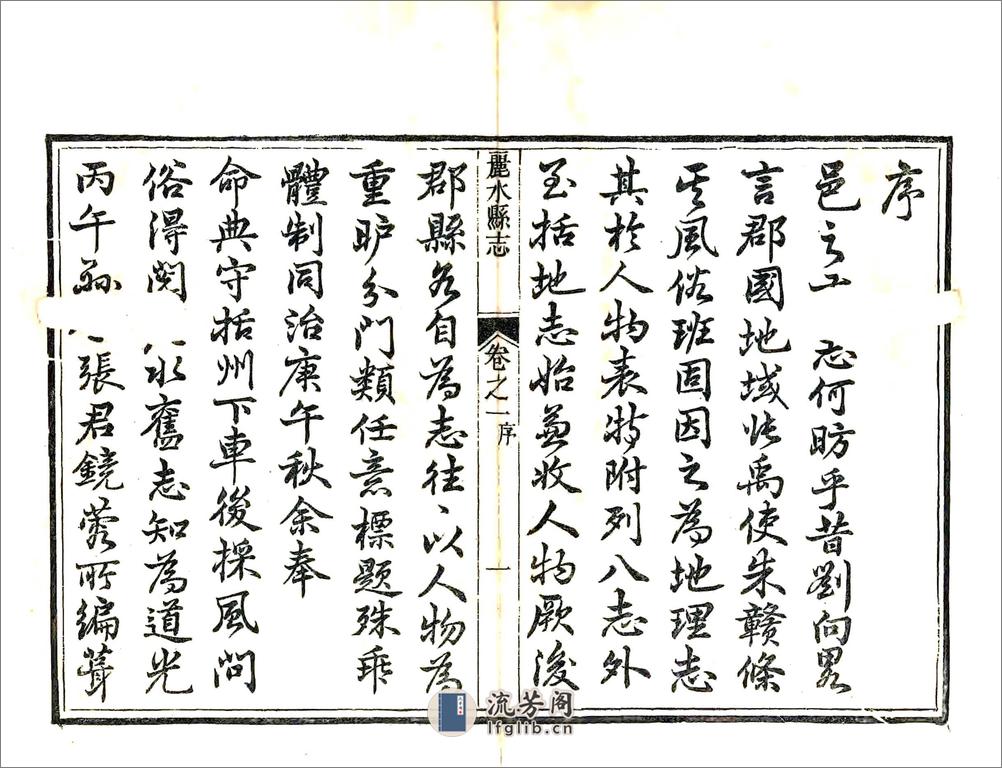 序
邑之 志何昉乎昔劉向略
言郡國地域張禹使朱贛條
其風俗班固因之為地理志
其於人物表特附列八志外
至括地志始兼收人物厥後
麗水縣志
卷之一 序
一
郡縣各自為志往〻以人物為
重眂分門類任意標題殊乖
體制同治庚午秋余奉
命典守括州下車後採風問
俗得閱 水舊志知為道光
丙午 張君鏡蓉所編葺
流芳阁
lfglib.cn